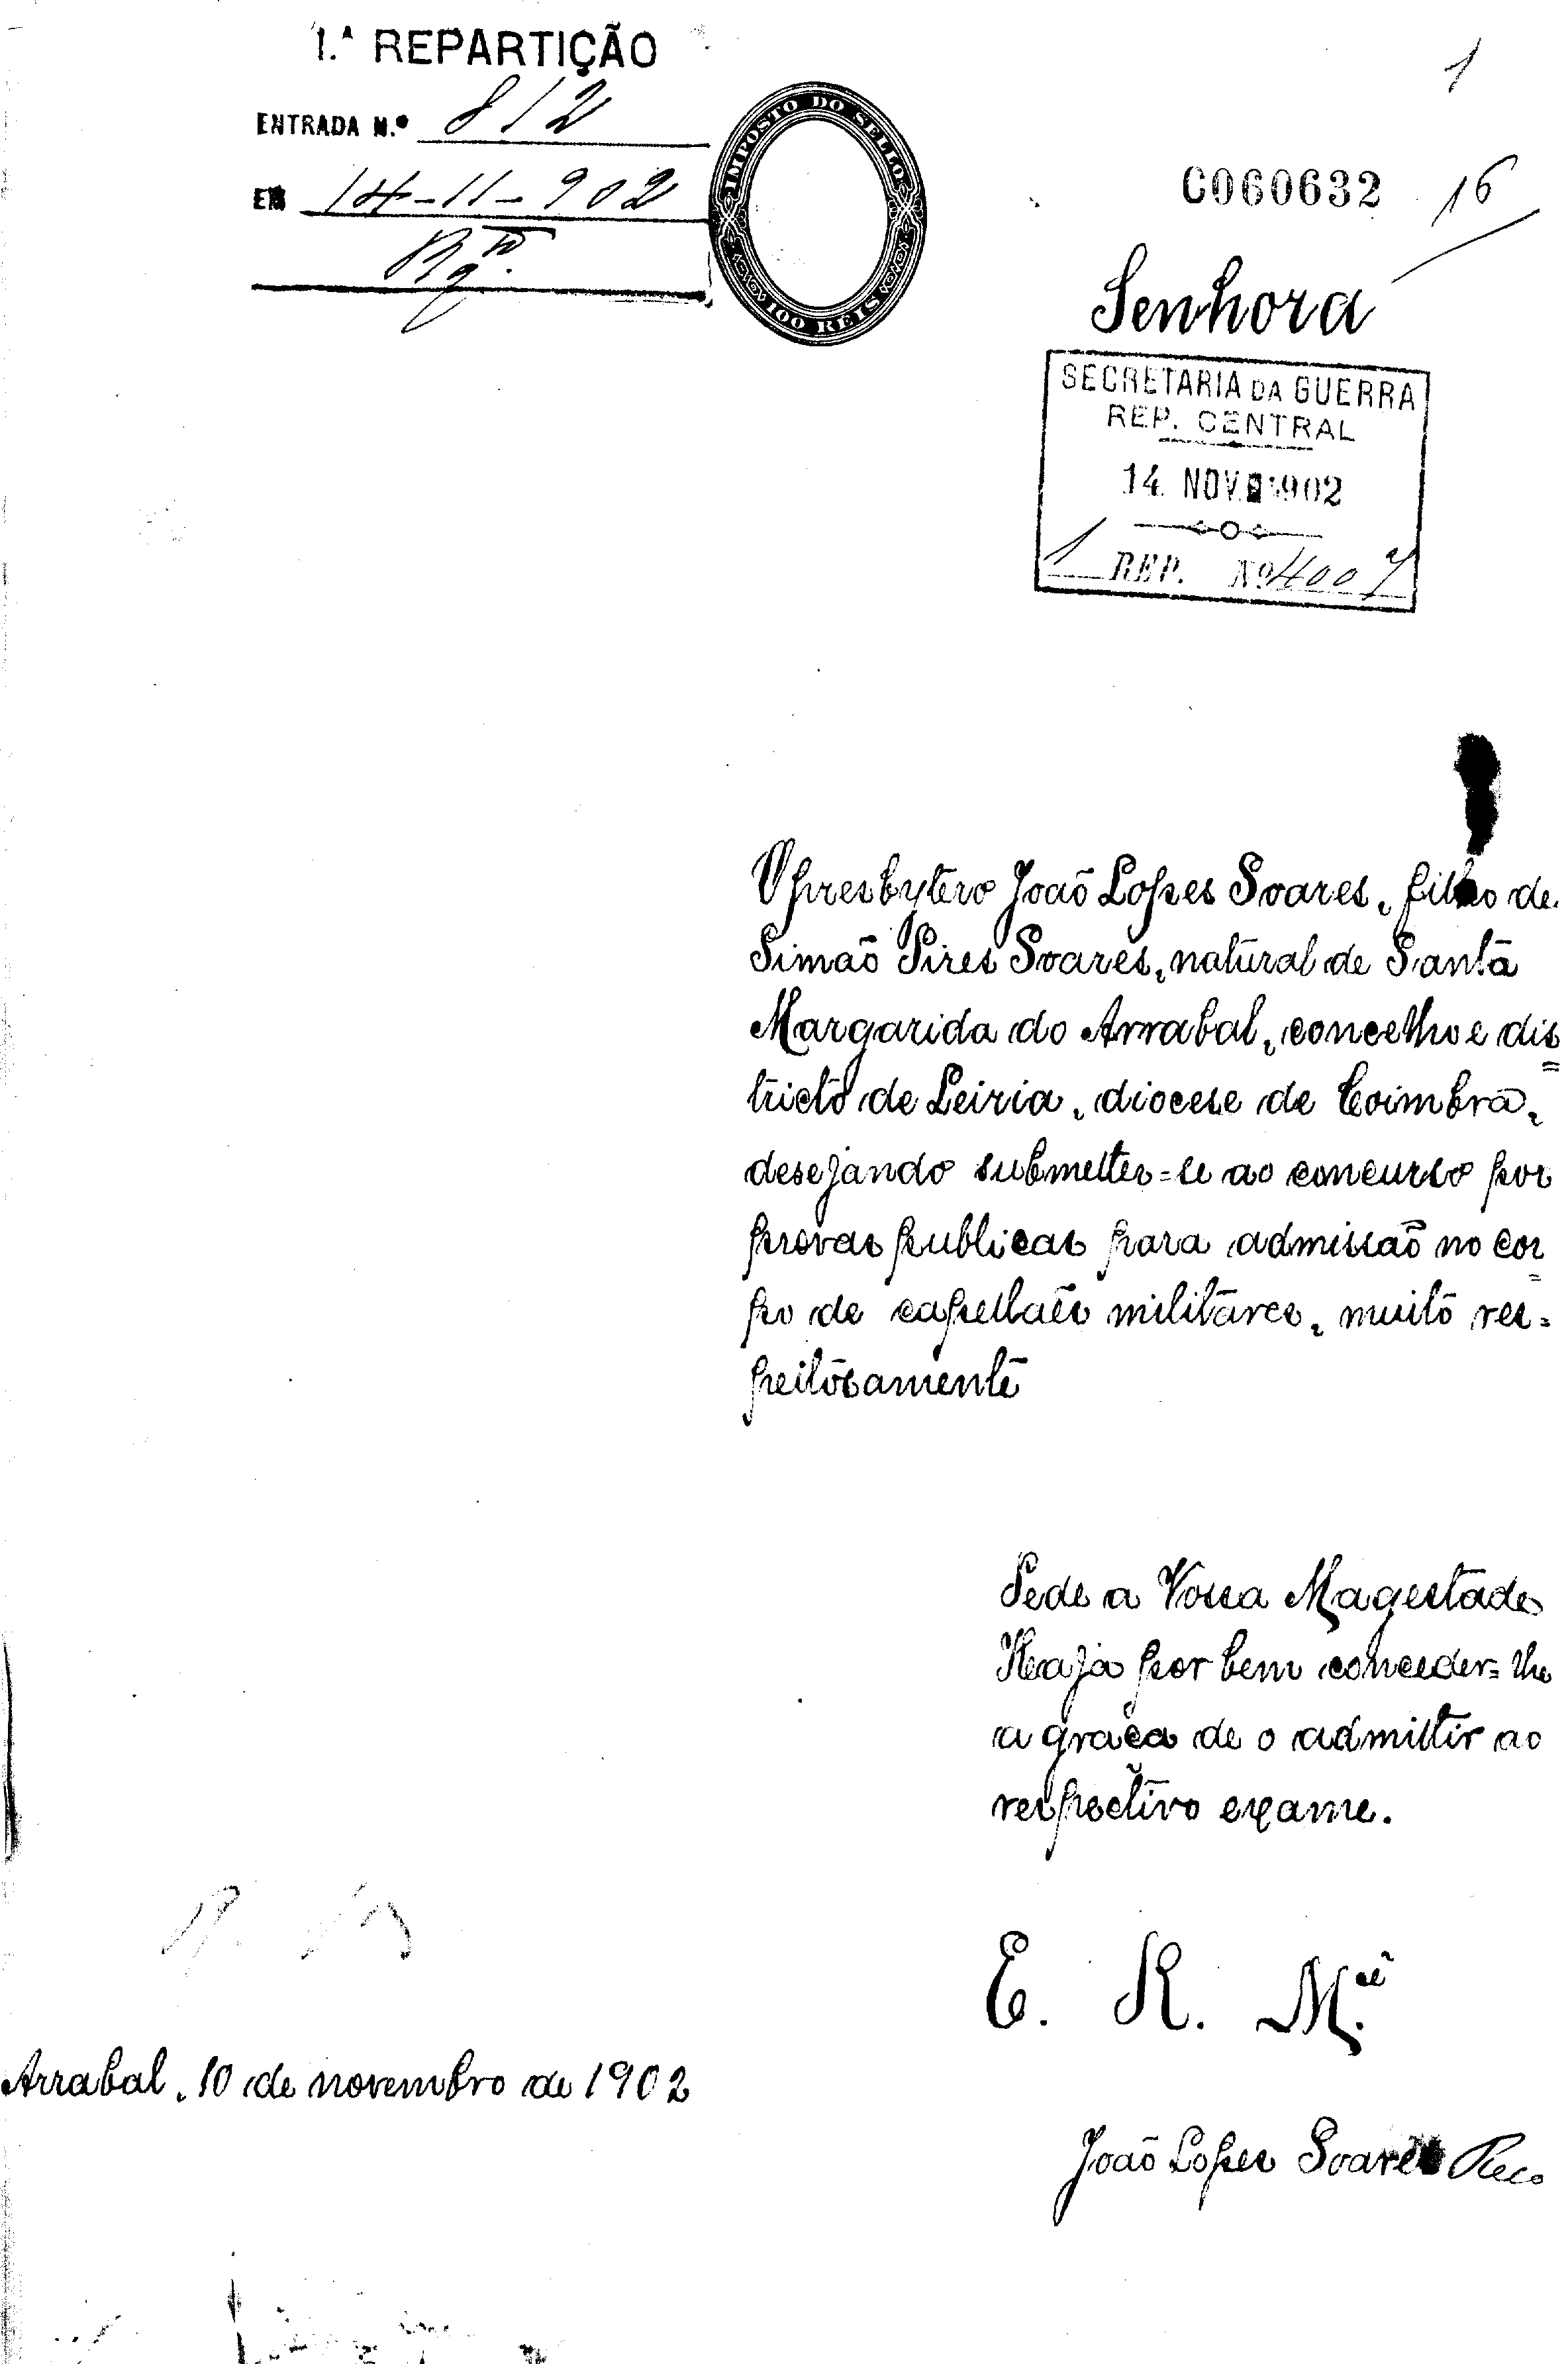 1.ª REPARTIÇÃO
ENTRADA N.º 812
EM 14-11-902
IMPOSTO DO SELLO
100 REIS
1
C060632
16
Senhora
SECRETARIA DA GUERRA
REP. CENTRAL
14. NOV. 1902
1 REP. Nº 4007
O presbytero João Lopes Soares, filho de
Simão Pires Soares, natural de Santa
Margarida do Arrabal, concelho e dis
tricto de Leiria, diocese de Coimbra,
desejando submetter=se ao concurso por
provas publicas para admissão no cor
po de capellães militares, muito res=
peitosamente
Pede a Vossa Magestade
Haja por bem conceder=lhe
a graça de o admittir ao
respectivo exame.
E. R. M.cê
Arrabal, 10 de novembro de 1902
João Lopes Soares